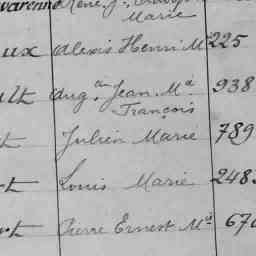 varenne René, J.
Marie
aux Alexis Henri M 225
ult Aug.in Jean, M.e 938
François
t Julien Marie 789
rt Louis Marie 248
rt Pierre Ernest M.e 670